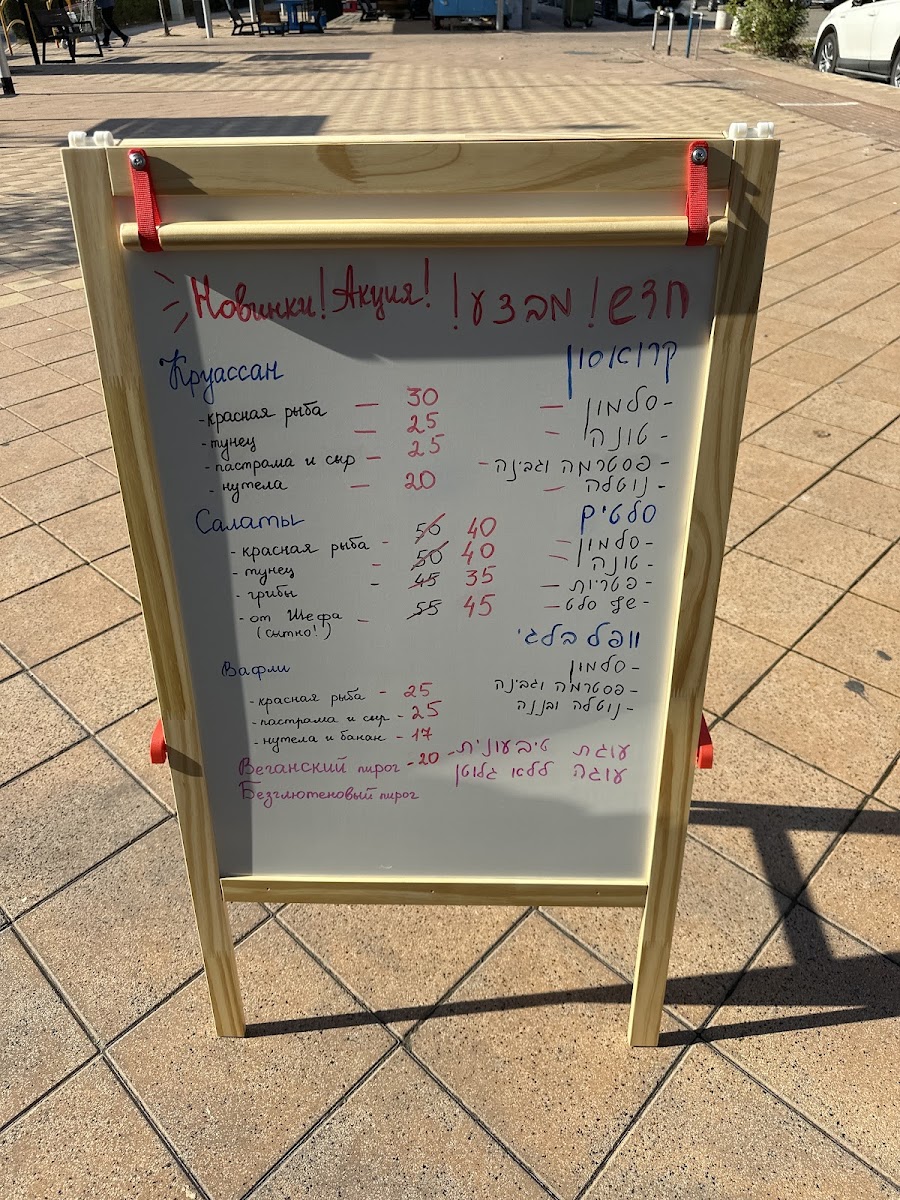 Новинки! Акция! חדש! מבצע!
Круассан קרואסון
- красная рыба — 30 — סלמון -
- тунец — 25 — טונה -
- пастрама и сыр — 25 - פסטרמה וגבינה -
- нутела — 20 — נוטלה -
Салаты סלטים
- красная рыба - 50 40 — סלמון -
- тунец - 50 40 — טונה -
- грибы - 45 35 — פטריות -
- от Шефа - 55 45 — שף סלט -
(сытно!)
Вафли וופל בלגי
- красная рыба - 25 סלמון -
- пастрама и сыр - 25 פסטרמה וגבינה -
- нутела и банан - 17 נוטלה ובננה -
Веганский пирог - 20 - עוגת טיבעונית
Безглютеновый пирог עוגה ללא גלוטן